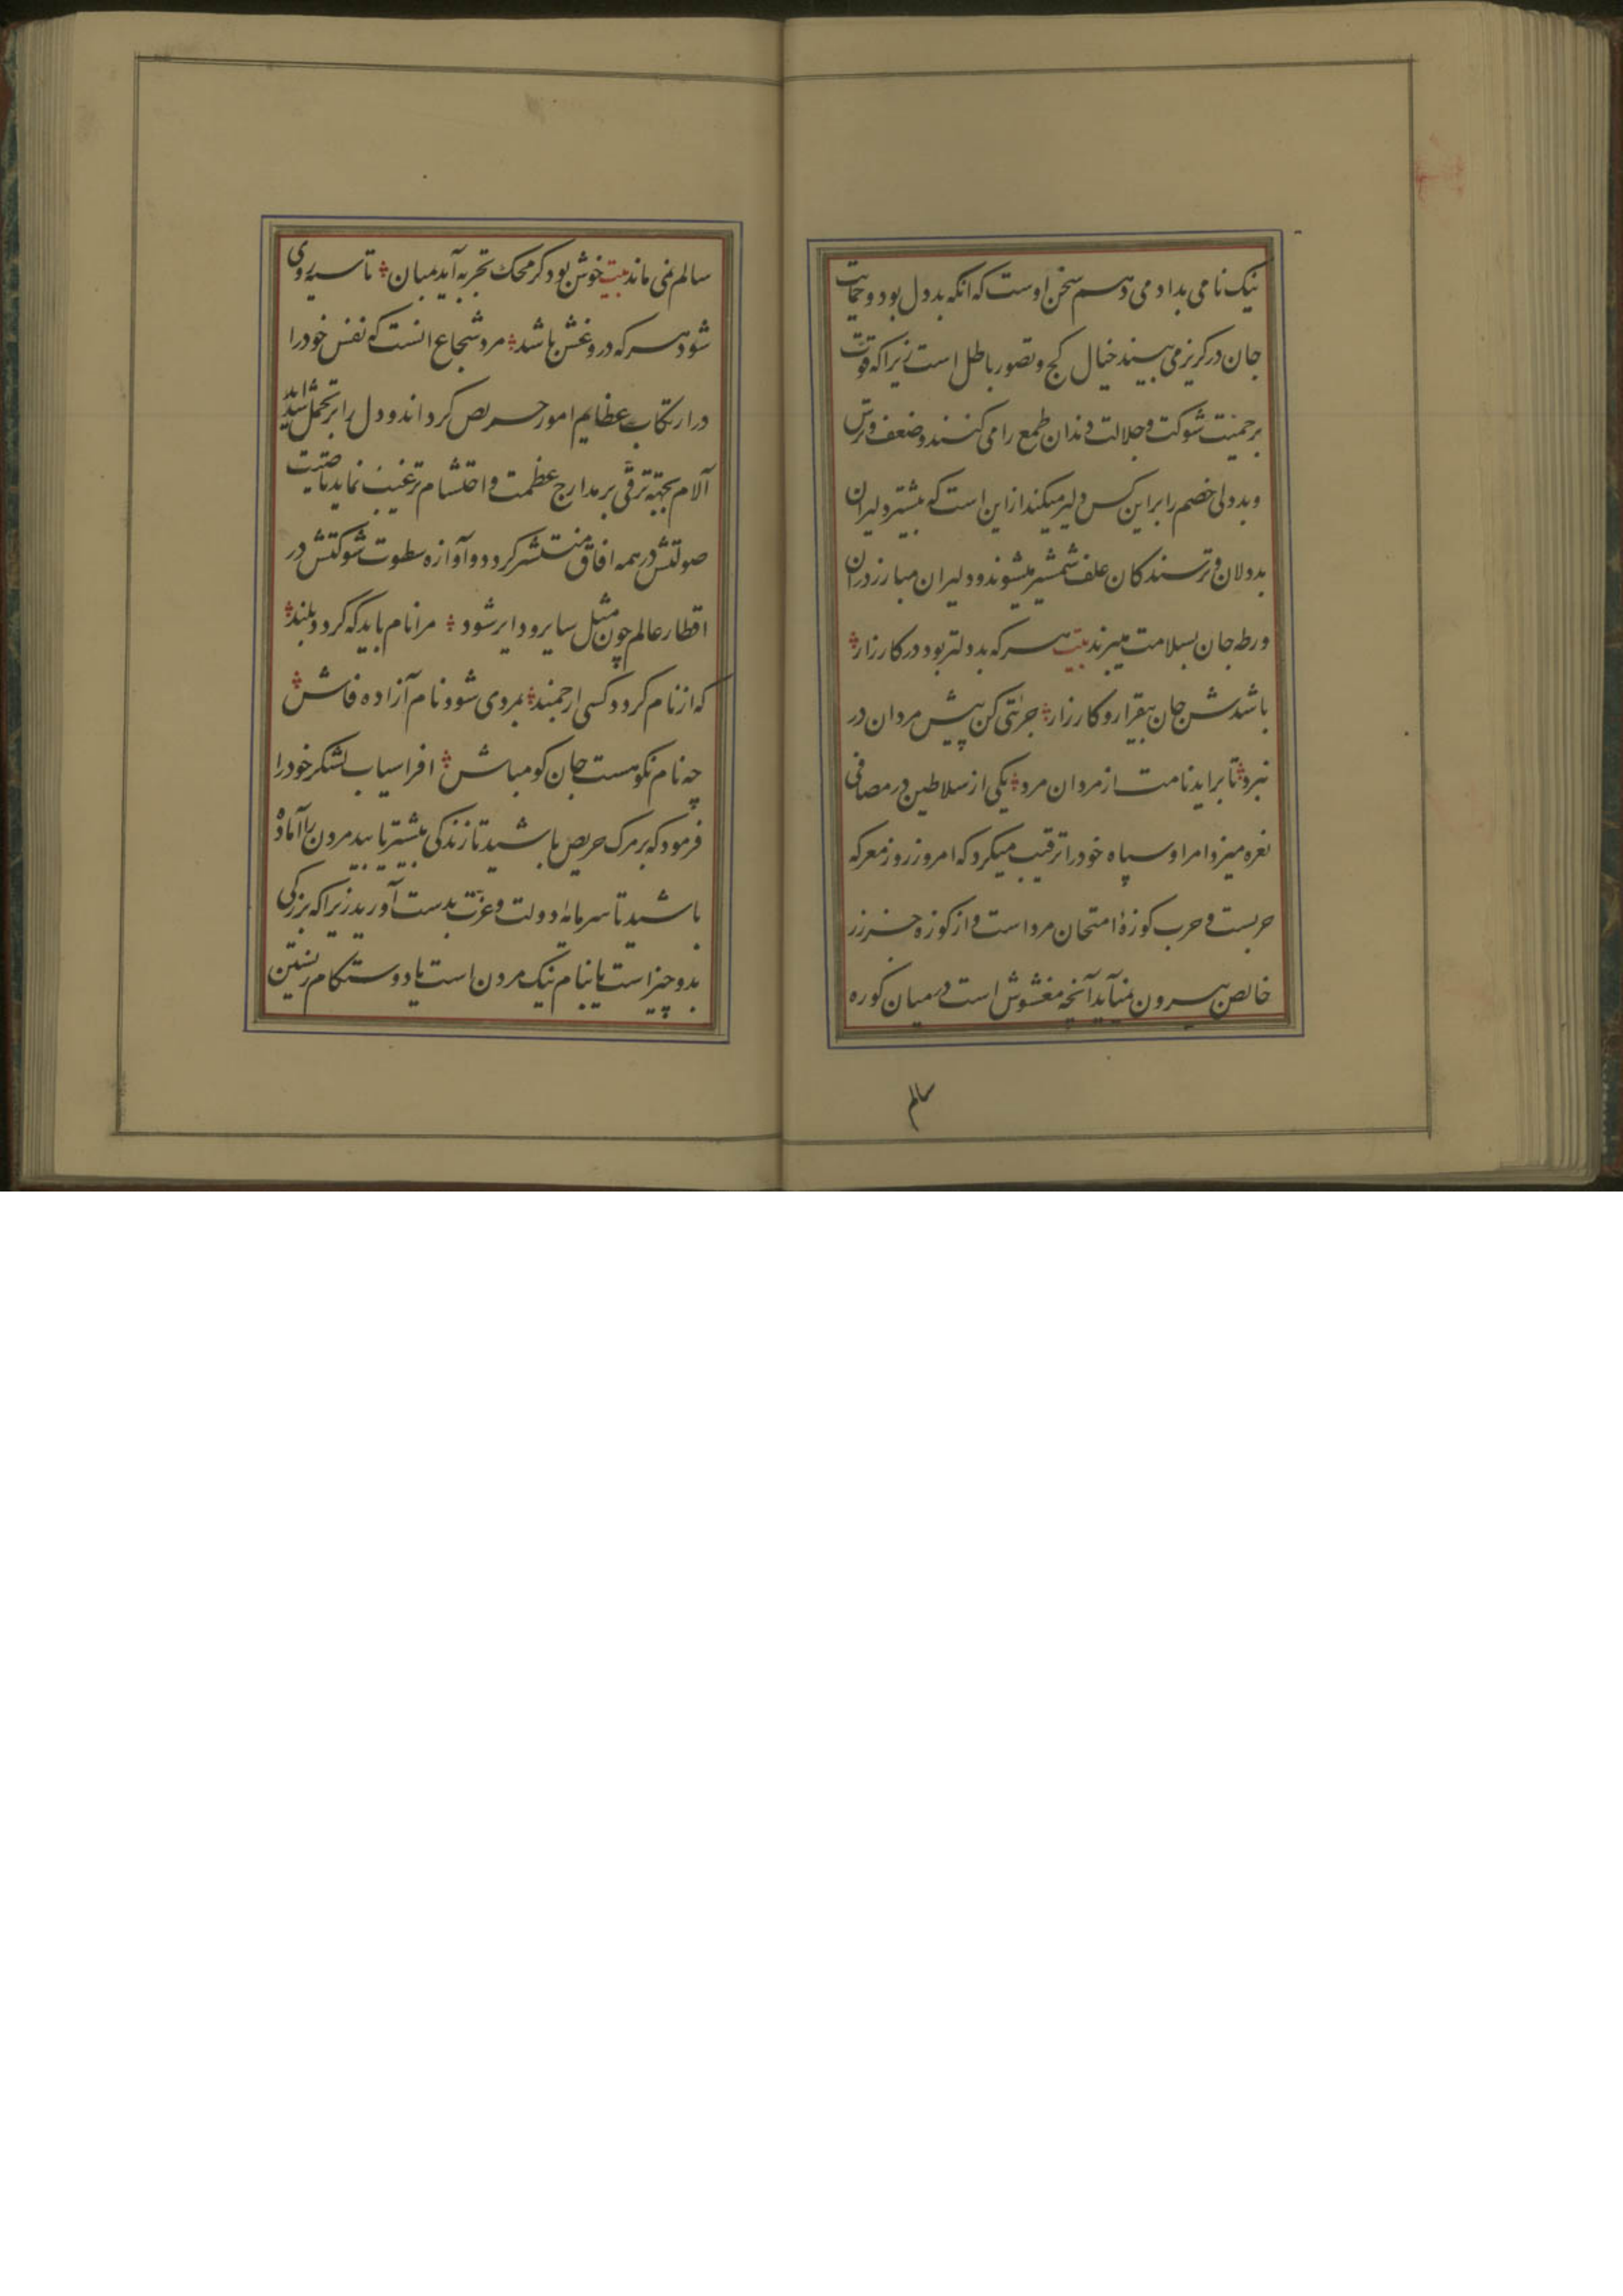 نیک نامی بداد می دهد هم سخن اوست که آنکه بددل بود و حمایت
جان در گریز می بیند خیال کج و تصور باطل است زیرا که قوت
بر حمیت شوکت و جلالت دندان طمع را می کند و ضعف و ترس
و بددلی خصم را بر این کس دلیر میکند از این است که بیشتر دلیران
بددلان و ترسندکان علف شمشیر میشوند و دلیران مبارز در آن
ورطه جان بسلامت میبرند بیت هر که بددلتر بود در کارزار
باشدش جان بیقرار و کارزار جرئتی کن پیش مردان در
نبرد تا برآید نامت از مردان مرد یکی از سلاطین در مصافی
نعره میزد و امرا و سپاه خود را ترغیب میکرد که امروز روز معرکه
حربست و حرب کوزهٔ امتحان مرد است و از کوزه جز زر
خالص بیرون نمیآید آنچه مغشوش است در میان کوره
سالم
سالم نمی ماند بیت خوش بود گر محک تجربه آید بمیان تا سیه روی
شود هر که در و غش باشد مرد شجاع آنست که نفس خود را
در ارتکاب عظایم امور حریص گرداند و دل را بر تحمل شداید
آلام بجهته ترقی بر مدارج عظمت و احتشام ترغیب نماید تا صیت
صولتش در همه افاق منتشر گردد و آوازه سطوت شوکتش در
اقطار عالم چون مثل سایر و دایر شود مرا نام باید که گردد بلند
که از نام گردد کسی ارجمند بمردی شود نام آزاده فاش
چه نام نکو هست جان کو مباش افراسیاب لشکر خود را
فرمود که بر مرک حریص باشید تا زندگی بیشتر یابید مردن را آماده
باشید تا سرمایه دولت و عزت بدست آورید زیرا که بزرگی
بدو چیز است یا بنام نیک مردن است یا دوستکام زیستن